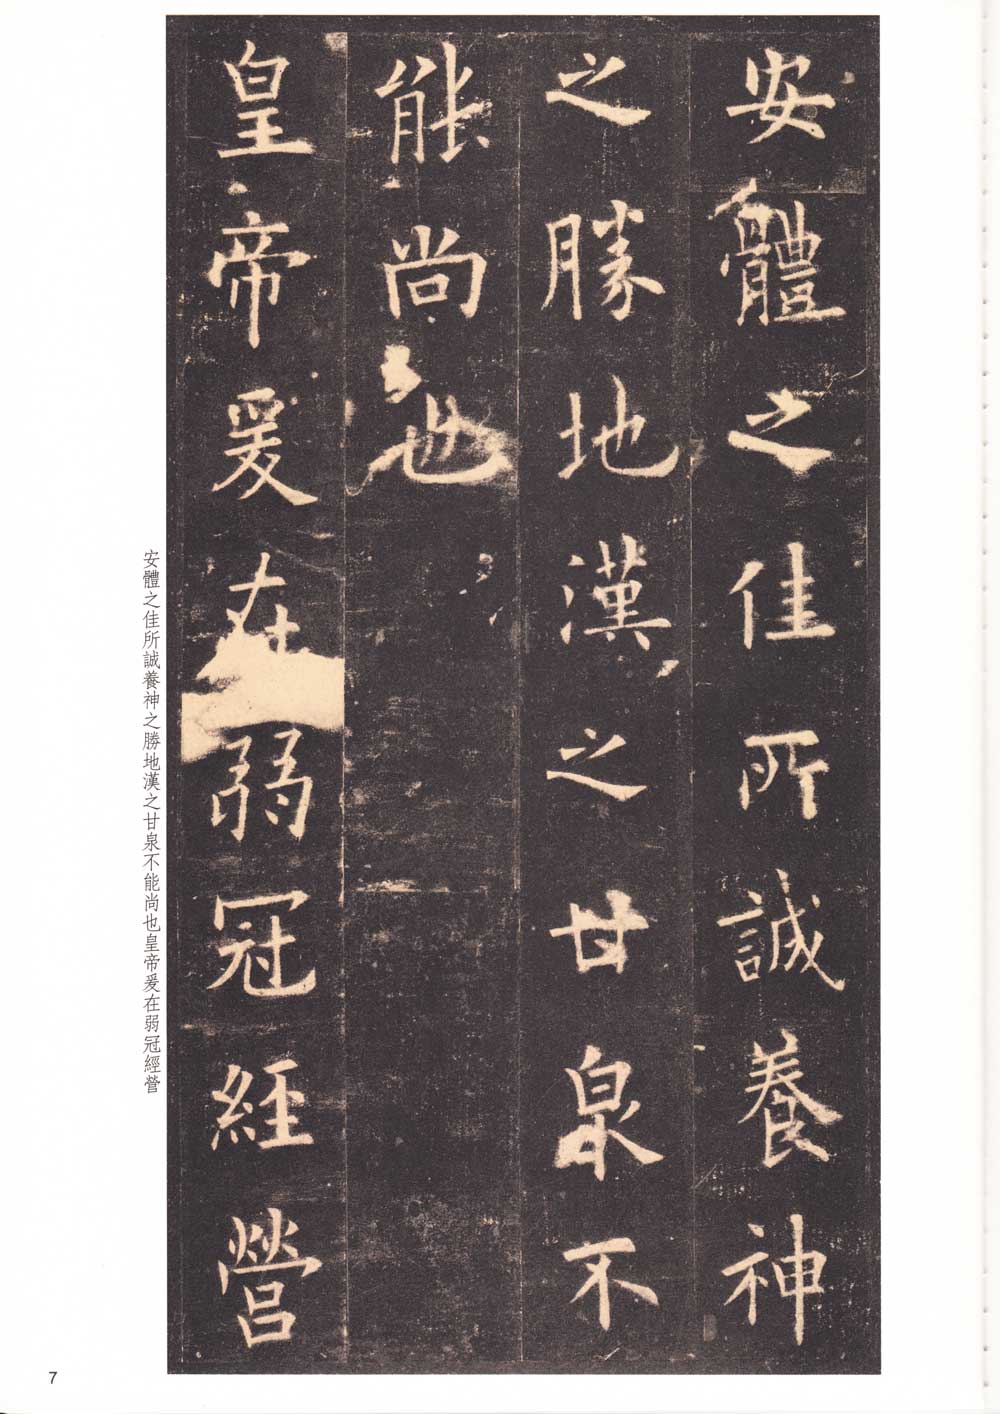 安體之佳所誠養神
之勝地漢之甘泉不
能尚也
皇帝爰在弱冠經營
安體之佳所誠養神之勝地漢之甘泉不能尚也皇帝爰在弱冠經營
7